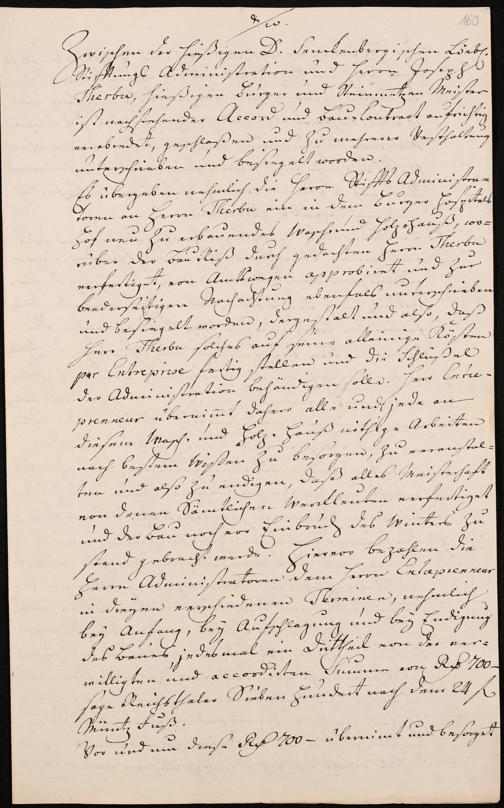 160
Zwischen der hießigen D. Senckenbergischen Löbl.
Stifftungs Administration und Herrn Joseph
Therbu, hießigen burger und Steinmetzen Meister
ist nachstehender Accord und bau Contract aufrichtig
verabredet, geschloßen und zu mehrerer Vesthaltung
unterschrieben und besiegelt worden.
Es übergeben nehmlich die Herrn Stiffts Administra=
toren an Herrn Therbu ein in dem Burger Hospitals
Hof neu zu erbauendes Wasch und Holzhauß, wo=
rüber der bau Riß durch gedachten Herrn Therbu
verfertiget, von Amtswegen approbiret und zur
beederseitigen Nachachtung ebenfals unterschrieben
und besiegelt worden, dergestalt und also, daß
Herr Therbu solches auf seine alleinige Kösten
per Entreprise fertig stellen und die Schlüßel
der Administration behändigen solle. Herr Entre=
prenneur übernimmt dahero alle und jede an
diesem Wasch- und Holz-Hauß nöthige Arbeiten
nach bestem Wissen zu besorgen, zu veranstal=
ten und also zu endigen, daß alles Meisterhafft
von denen Sämtlichen Werckleuten verfertiget
und der bau noch vor Einbruch des Winters zu
stand gebracht werde. Hiervor bezahlen die
Herrn Administratoren dem Herrn Entreprenneur
in dreyen verschiedenen Terminen, nehmlich
bey Anfang, bey Aufschlagung und bey Endigung
des baues, jedesmal ein Drittheil von der ver=
willigten und accordirten Summe von Rth 700-
sage Reichsthaler Sieben hundert nach dem 24 f
Müntz Fuß.
Vor und um diese Rth 700- übernimt und besorget